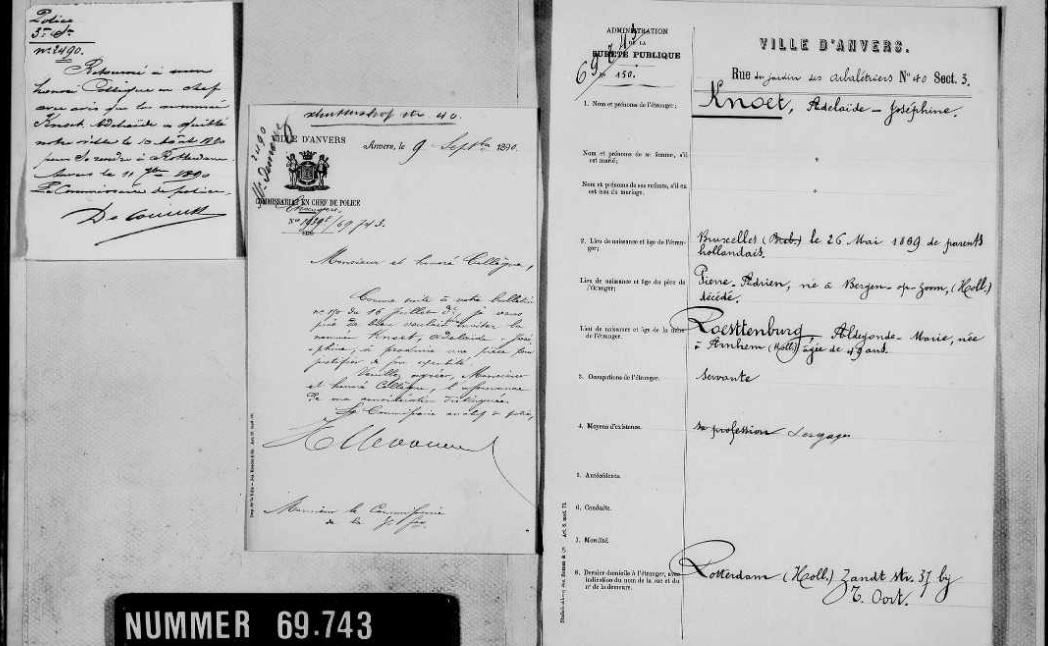 Police
3e Son
No 2490.
Retourné à mon
honoré Collègue en chef
avec avis que la nommée
Knoet Adelaïde a quitté
notre ville le 10 Août 1890
pour se rendre à Rotterdam.
Anvers le 11 7bre 1890
Le Commissaire de police,
Schuttershof str. 40.
VILLE D'ANVERS
Anvers, le 9 Septbre 1890.
2490
COMMISSARIAT EN CHEF DE POLICE
Etrangers.
No /69743.
Monsieur et honoré Collègue,
Comme suite à votre bulletin
du 16 juillet dr, je vous
prie de bien vouloir inviter la
nommée Knoet, Adelaïde - José-
phine, à produire une pièce pour
justifier de son identité.
Veuillez agréer, Monsieur
et honoré Collègue, l'assurance
de ma considération distinguée.
Le Commissaire en chef de police,
Monsieur le Commissaire
de la
ADMINISTRATION
DE LA
SURETÉ PUBLIQUE
No 150.
69743
VILLE D'ANVERS.
Rue du jardin des Arbalétriers No 40 Sect. 3.
1. Nom et prénoms de l'étranger; Knoet, Adelaïde - Joséphine.
Nom et prénoms de sa femme, s'il
est marié;
Nom et prénoms de ses enfants, s'il en
est issu du mariage.
2. Lieu de naissance et âge de l'étran-
ger; Bruxelles (Brab.) le 26 Mai 1869 de parents
hollandais.
Lieu de naissance et âge du père de
l'étranger; Pierre-Adrien, né à Bergen-op-Zoom, (Holl.)
décédé.
Lieu de naissance et âge de la mère
de l'étranger. Roesttenburg, Aldegonde-Marie, née
à Arnhem (Holl.) âgée de 49 ans.
3. Occupations de l'étranger. Servante
4. Moyens d'existence. sa profession Ses gages
5. Antécédents.
6. Conduite.
7. Moralité.
8. Dernier domicile à l'étranger, avec
indication du nom de la rue et du
no de la demeure. Rotterdam (Holl.) Zandt str. 37 by
T. Oort.
NUMMER 69.743